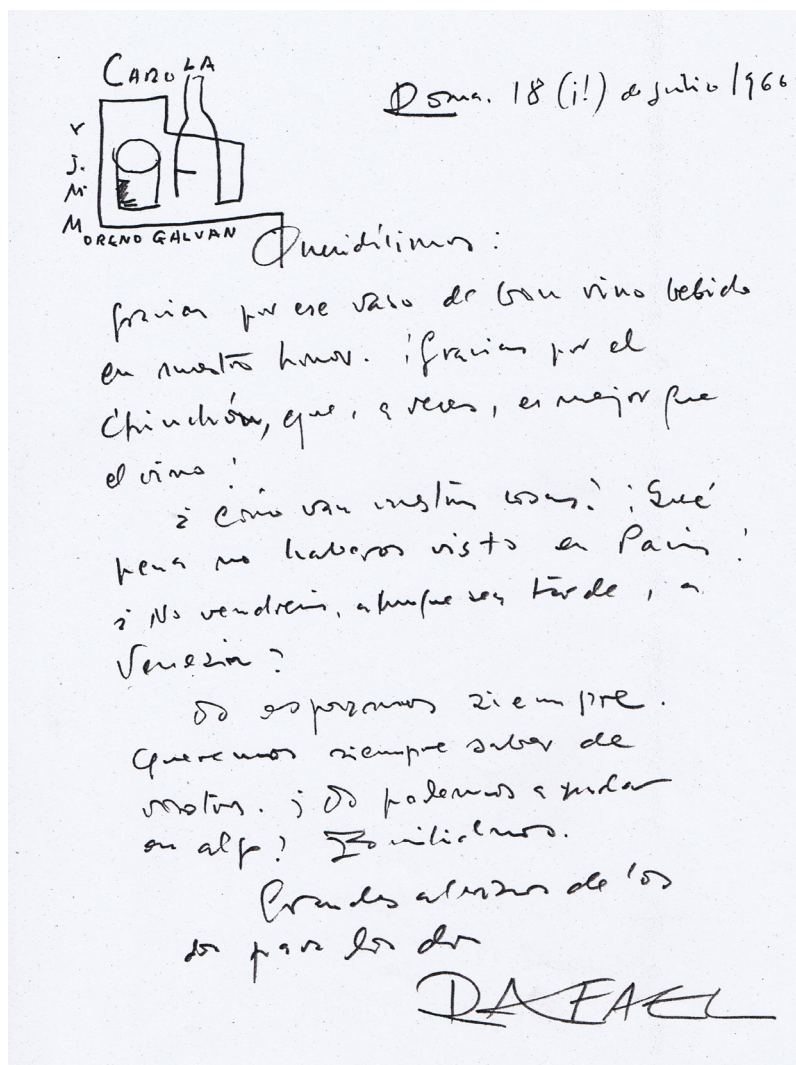 CAROLA
Roma. 18 (¡!) de julio 1966
Y
J.
M.
MORENO GALVAN
Queridísimos:
Gracias por ese vaso de bon vino bebido
en nuestro honor. ¡Gracias por el
Chinchón, que, a veces, es mejor que
el vino!
¿Cómo van vuestras cosas? ¡Qué
pena no haberos visto en París!
¿No vendréis, aunque sea tarde, a
Venezia?
Os esperamos siempre.
Queremos siempre saber de
vosotros. ¿Os podemos ayudar
en algo?
Grandes abrazos de los
dos para los dos
RAFAEL